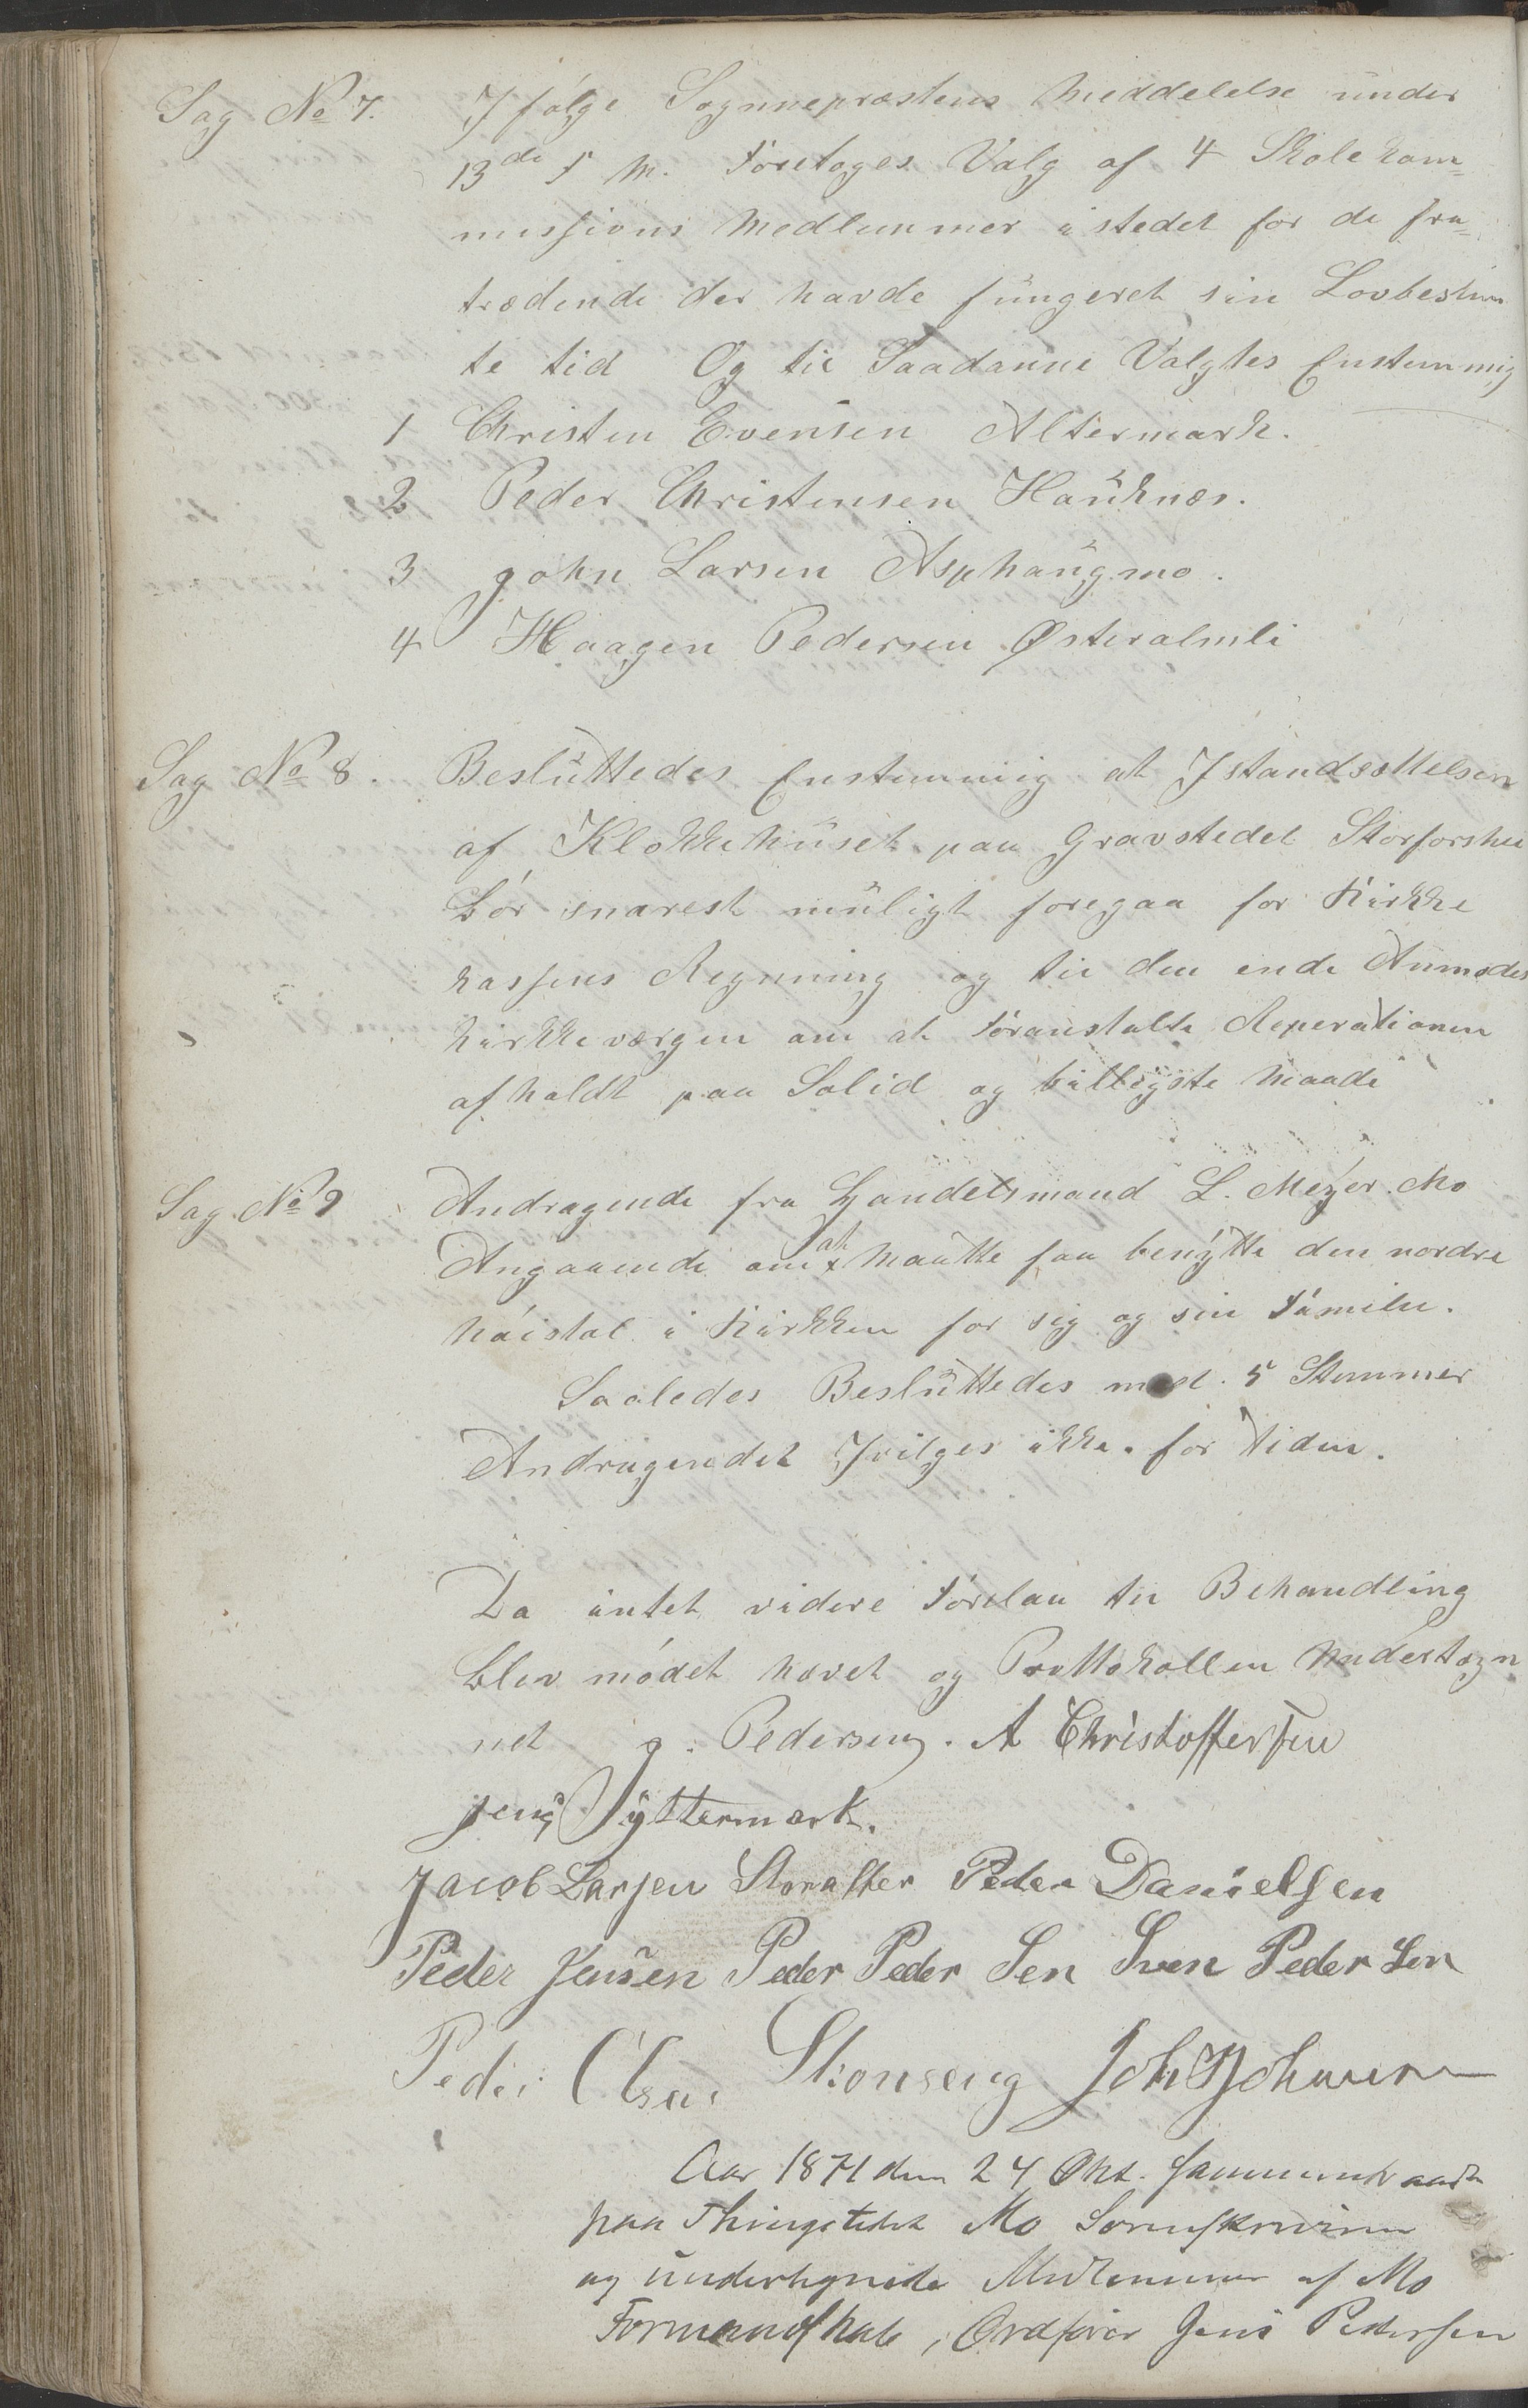 Sag No 7. Ifølge Sognepræstens Meddelelse under
13de f M. Foretoges Valg af 4 Skolekom-
missions Medlemmer istedet for de fra-
trædende der havde fungeret sin Lovbestem
te tid Og til Saadanne Valgtes Enstemmig
1 Christen Evensen Altermark.
2 Peder Christensen Hauknæs.
3 John Larsen Asphaugmo.
4 Haagen Pedersen Østeralmli
Sag No 8. Besluttedes Enstemmig at Istandsættelsen
af Klokkehuset paa Gravstedet Storforshei
Bør snarest muligt foregaa for Kirke
kassens Regnning og til den ende Anmodes
kirkeværgen om at Foranstalte Reperationen
afholdt paa Solid og billigste Maade
Sag No 9 Andragende fra Handelsmand L. Meyer Mo
Angaaende om at Maatte faa benytte den nordre
høistol i Kirkken for sig og sin Familie.
Saaledes Besluttedes med 5 Stemmer
Andragendet Ivilges ikke for Tiden.
Da intet videre Forelaa til Behandling
Blev mødet hævet og Prottokollen Undertegn
net J. Pedersen. A Christoffersen
Jens Yttermark.
Jacob Larsen Storalter Peder Danielsen
Peder Jensen Peder Peder Sen Sven Peder Sen
Peder Olsen Skonseng Joh Johnsen
Aar 1871 den 24 Okt. sammentraadte
paa Thingstedet Mo Sorenskriveren
og undertegnede Medlemmer af Mo
Formandskab, Ordfører Jens Pedersen